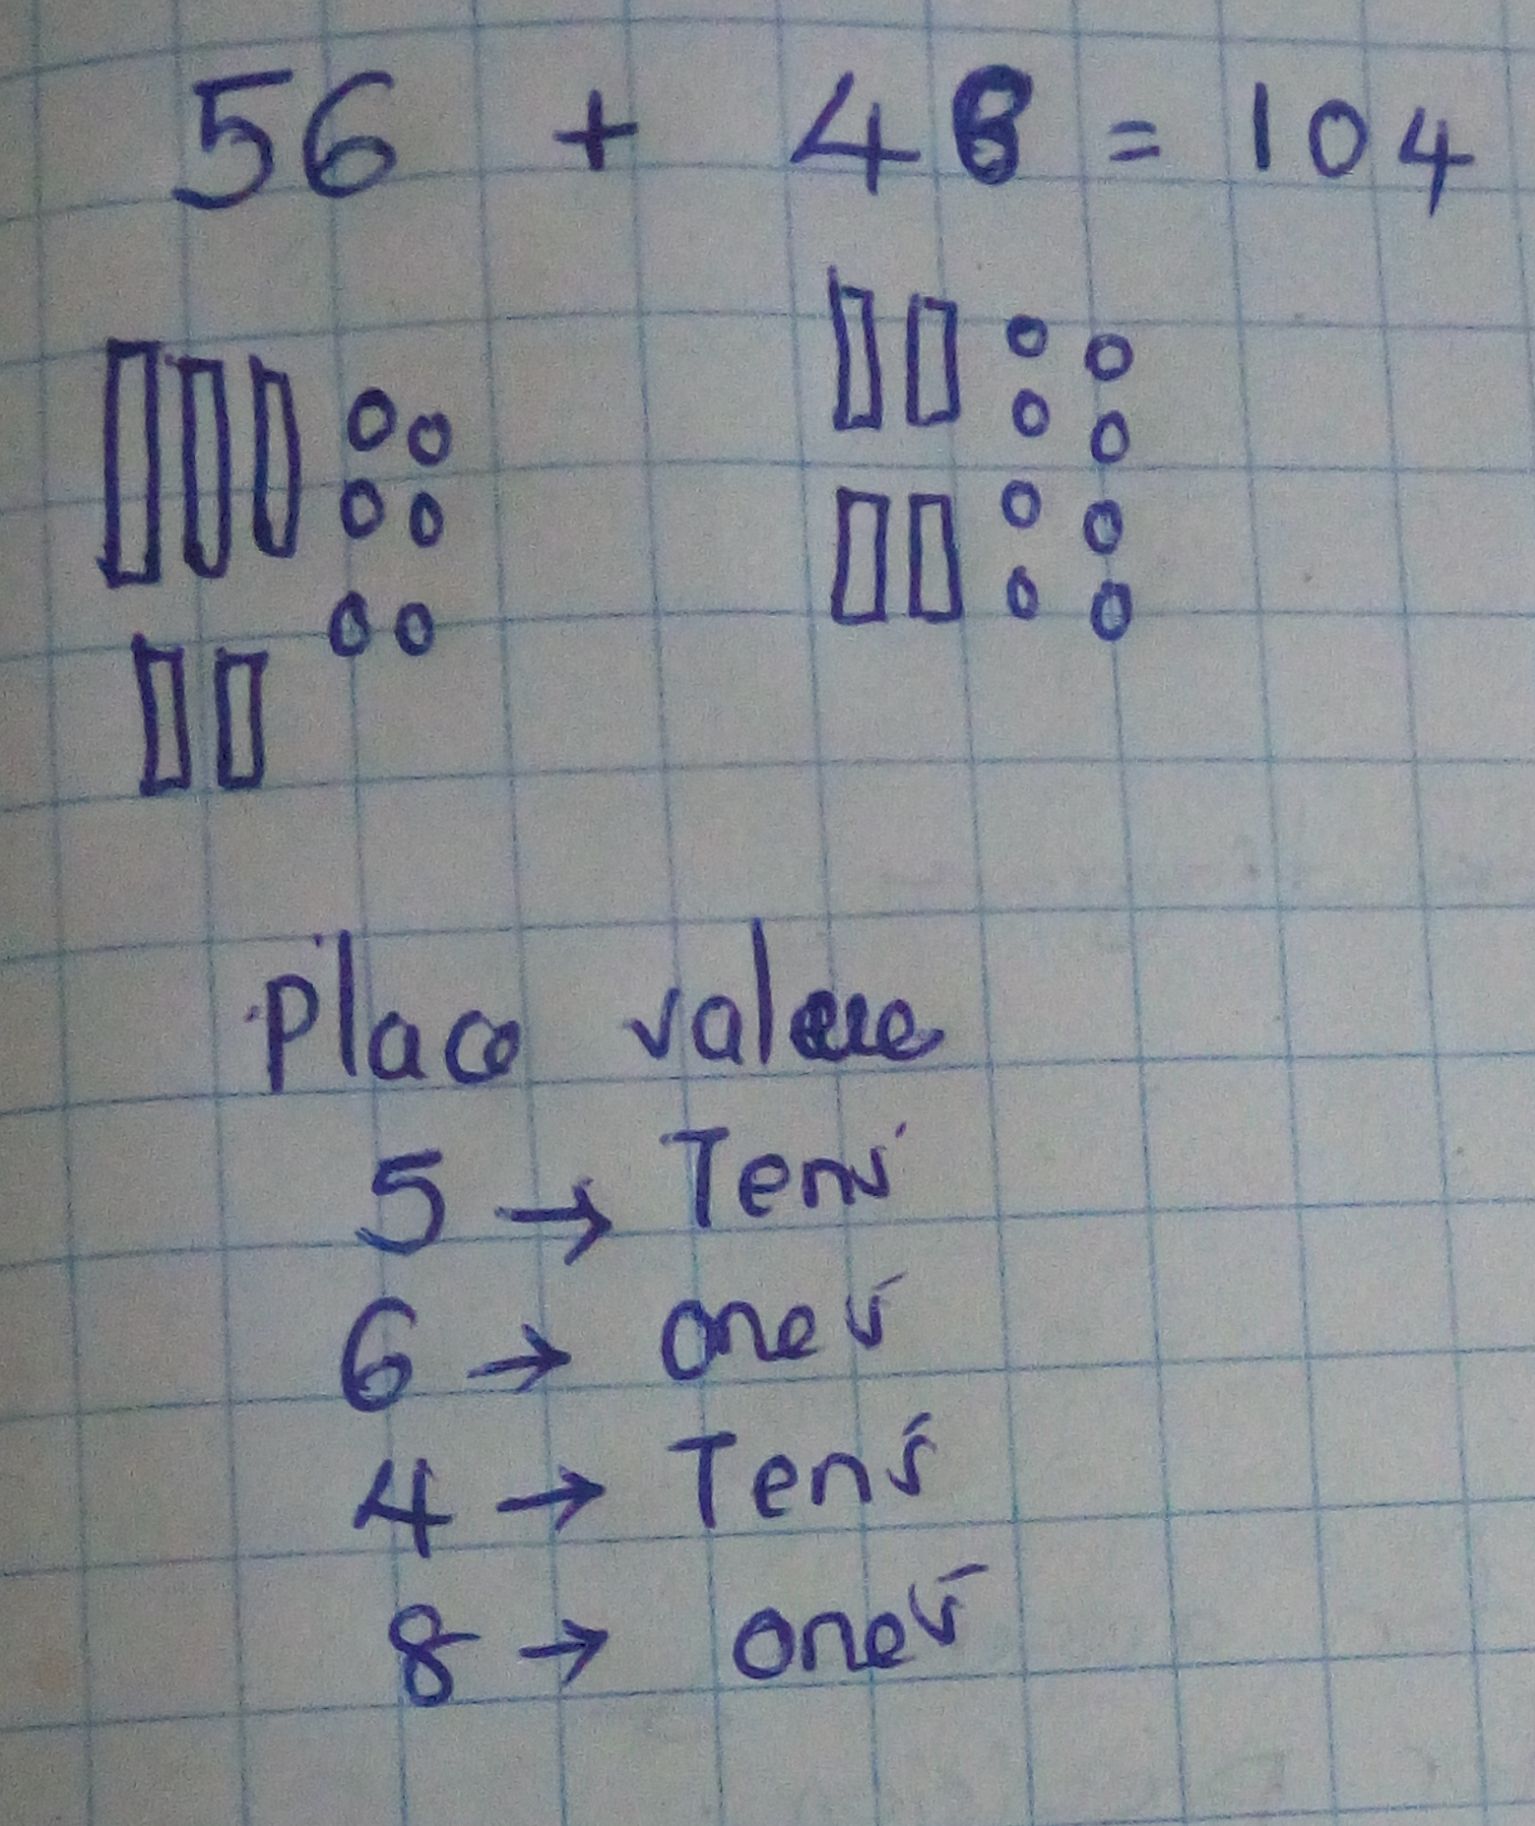 56 + 48 = 104
Place value
5 → Tens
6 → ones
4 → Tens
8 → ones